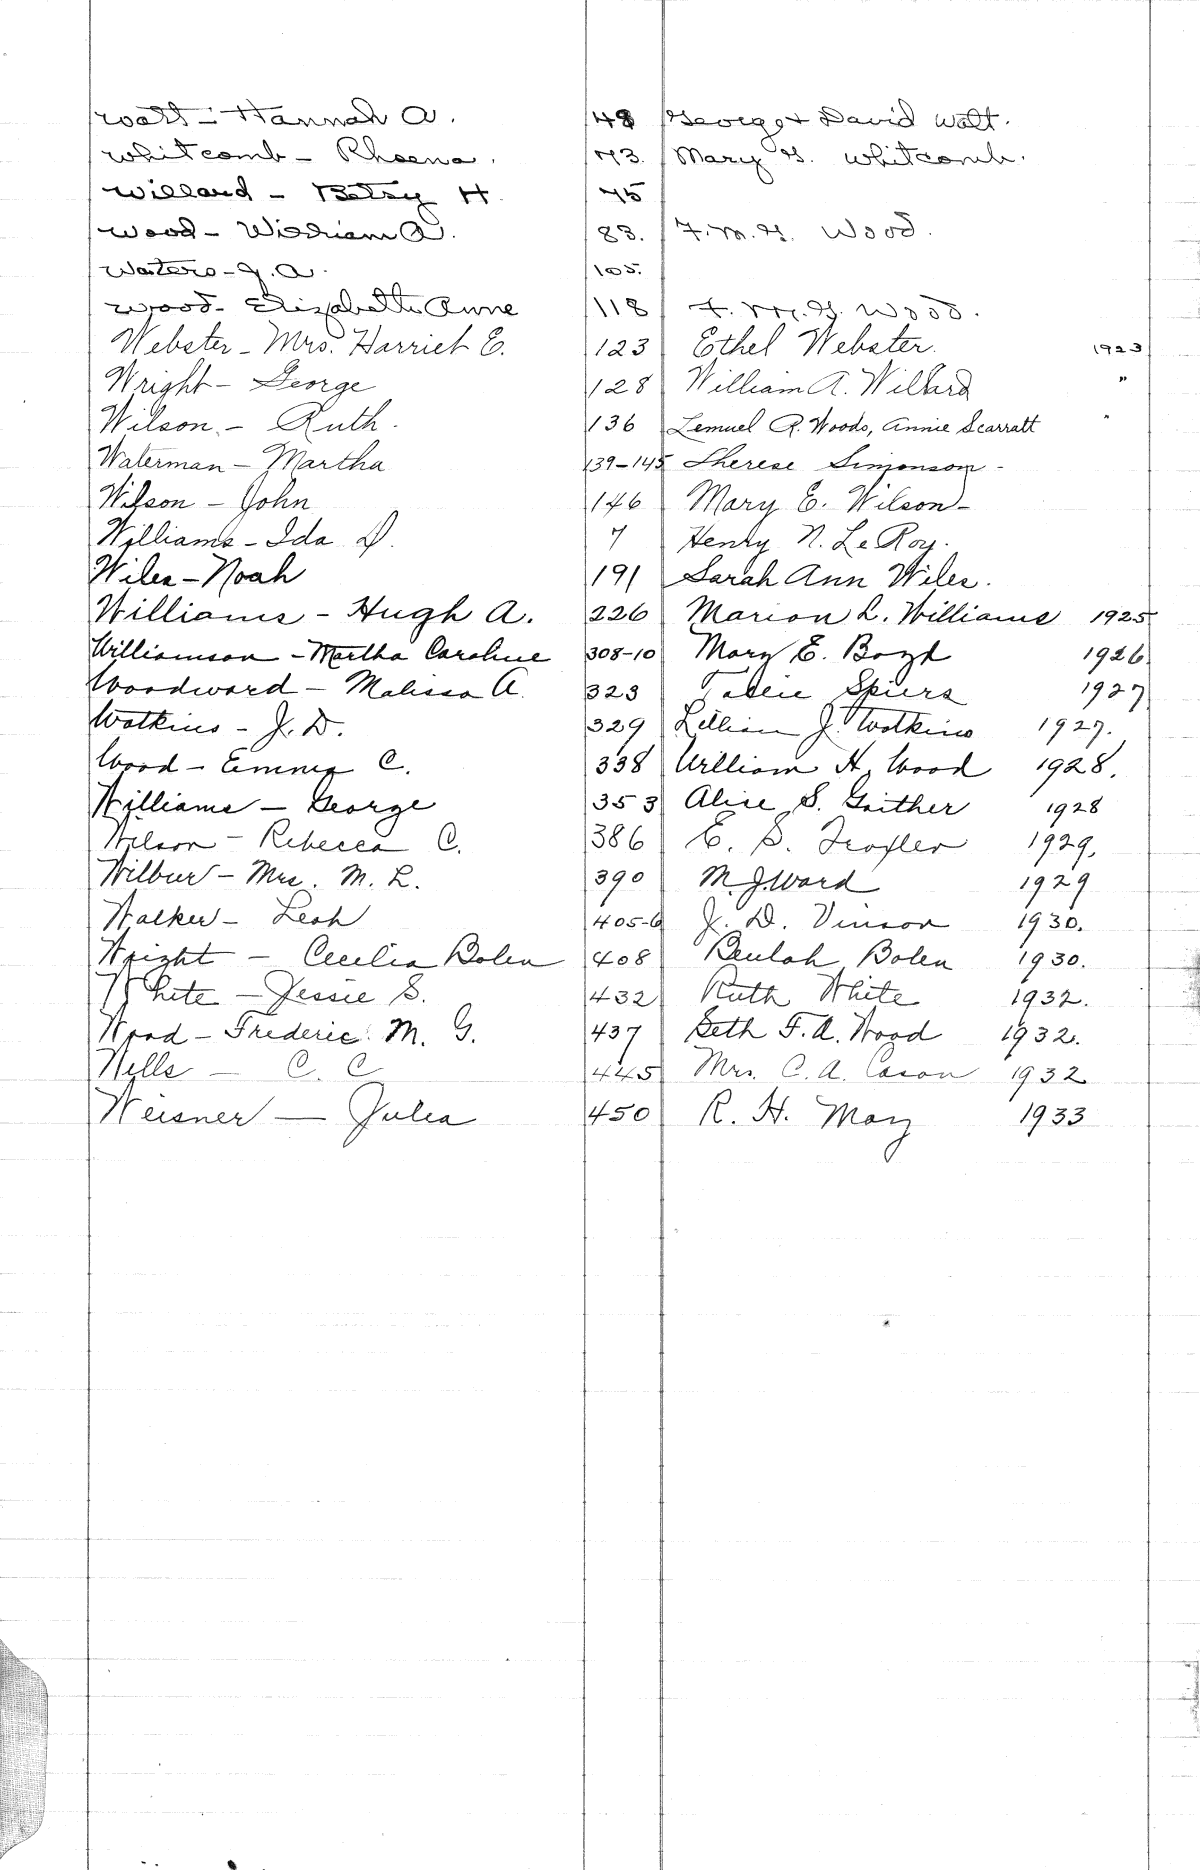 Watt - Hannah A. 48 George & David Watt.
Whitcomb - Rhoena. 73. Mary G. Whitcomb.
Willard - Betsy H 75
Wood - William A. 83. F.M.G. Wood.
Waters - J.A. 105.
Wood - Elizabeth Anne 118 F.M.G. Wood.
Webster - Mrs. Harriet E. 123 Ethel Webster. 1923
Wright - George 128 William A. Willard "
Wilson - Ruth. 136 Lemuel R. Woods, Annie Scarratt "
Waterman - Martha 139-145 Therese Simonson -
Wilson - John 146 Mary E. Wilson -
Williams - Ida D. 7 Henry N. LeRoy.
Wiles - Noah 191 Sarah Ann Wiles.
Williams - Hugh A. 226 Marion L. Williams 1925
Williamson - Martha Caroline 308-10 Mary E. Boyd 1926
Woodward - Malissa A. 323 Spiers 1927
Watkins - J. D. 329 Lillian J. Watkins 1927.
Wood - Emma C. 338 William H. Wood 1928.
Williams - George 353 Alice S. Gaither 1928
Wilson - Rebecca C. 386 E. S. Troxler 1929.
Wilbur - Mrs. M. L. 390 M. J. Ward 1929
Walker - Leah 405-6 J. D. Vinson 1930.
Wright - Cecilia Bolen 408 Beulah Bolen 1930.
White - Jessie S. 432 Ruth White 1932.
Wood - Frederic M. G. 437 Seth F. A. Wood 1932.
Wells - C. C 445 Mrs. C. A. Cason 1932
Weisner - Julia 450 R. H. May 1933